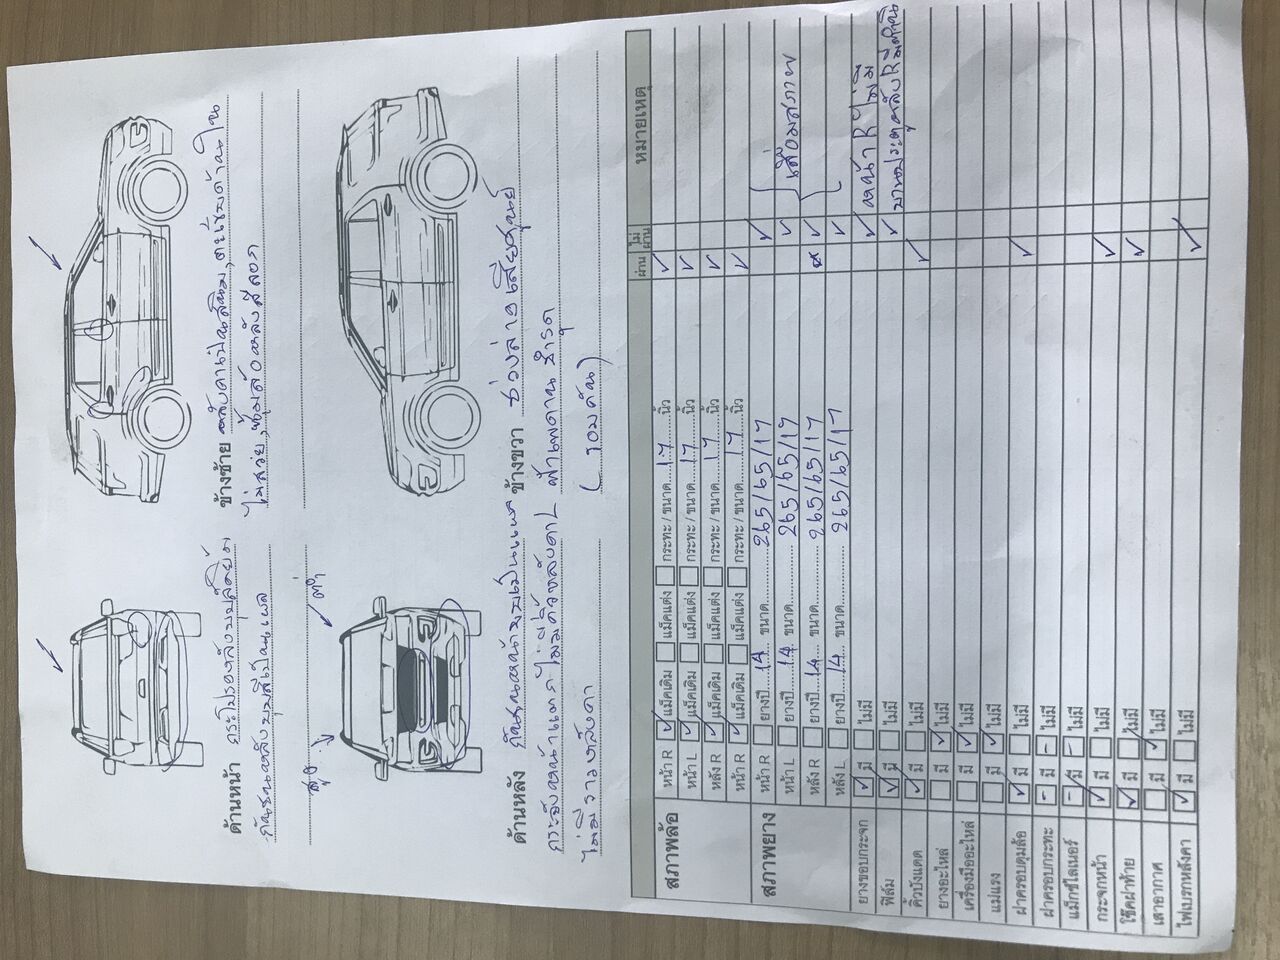 ด้านหน้า กระโปรงหลังบุบสีแย้ม
กันชนหลังบุบสีเป็นแผล
ข้างซ้าย หลังคาเป็นสนิม,
ไม่สวย, ซุ้มล้อหลังสีลอก
สูง
ต่ำ
ด้านหลัง กันชนหน้าบุบเป็นแผล
กระจังหน้าแตก
ไม่มีราวหลังคา
ข้างขวา ช่วงล่างเสียศูนย์
ไม่มีคิ้วหลังคา L ฝ้าเพดานชำรุด
(รอบคัน)
ผ่าน ไม่ผ่าน หมายเหตุ
สภาพล้อ หน้า R แม็คเดิม แม็คแต่ง กระทะ / ขนาด 17 นิ้ว
หน้า L แม็คเดิม แม็คแต่ง กระทะ / ขนาด 17 นิ้ว
หลัง R แม็คเดิม แม็คแต่ง กระทะ / ขนาด 17 นิ้ว
หน้า R แม็คเดิม แม็คแต่ง กระทะ / ขนาด 17 นิ้ว
สภาพยาง หน้า R ยางปี 14 ขนาด 265/65/17
หน้า L ยางปี 14 ขนาด 265/65/17 เสื่อมสภาพ
หลัง R ยางปี 14 ขนาด 265/65/17
หลัง L ยางปี 14 ขนาด 265/65/17
ยางขอบกระจก มี ไม่มี หน้า R ไม่มี
ฟิล์ม มี ไม่มี บานประตูหลัง R มีตำหนิ
คิ้วบังแดด มี ไม่มี
ยางอะไหล่ มี ไม่มี
เครื่องมืออะไหล่ มี ไม่มี
แม่แรง มี ไม่มี
ฝาครอบดุมล้อ มี ไม่มี
ฝาครอบกระทะ มี ไม่มี
แม็กซ์ไลเนอร์ มี ไม่มี
กระจกหน้า มี ไม่มี
โช๊คฝาท้าย มี ไม่มี
เสาอากาศ มี ไม่มี
ไฟเบรกหลังคา มี ไม่มี